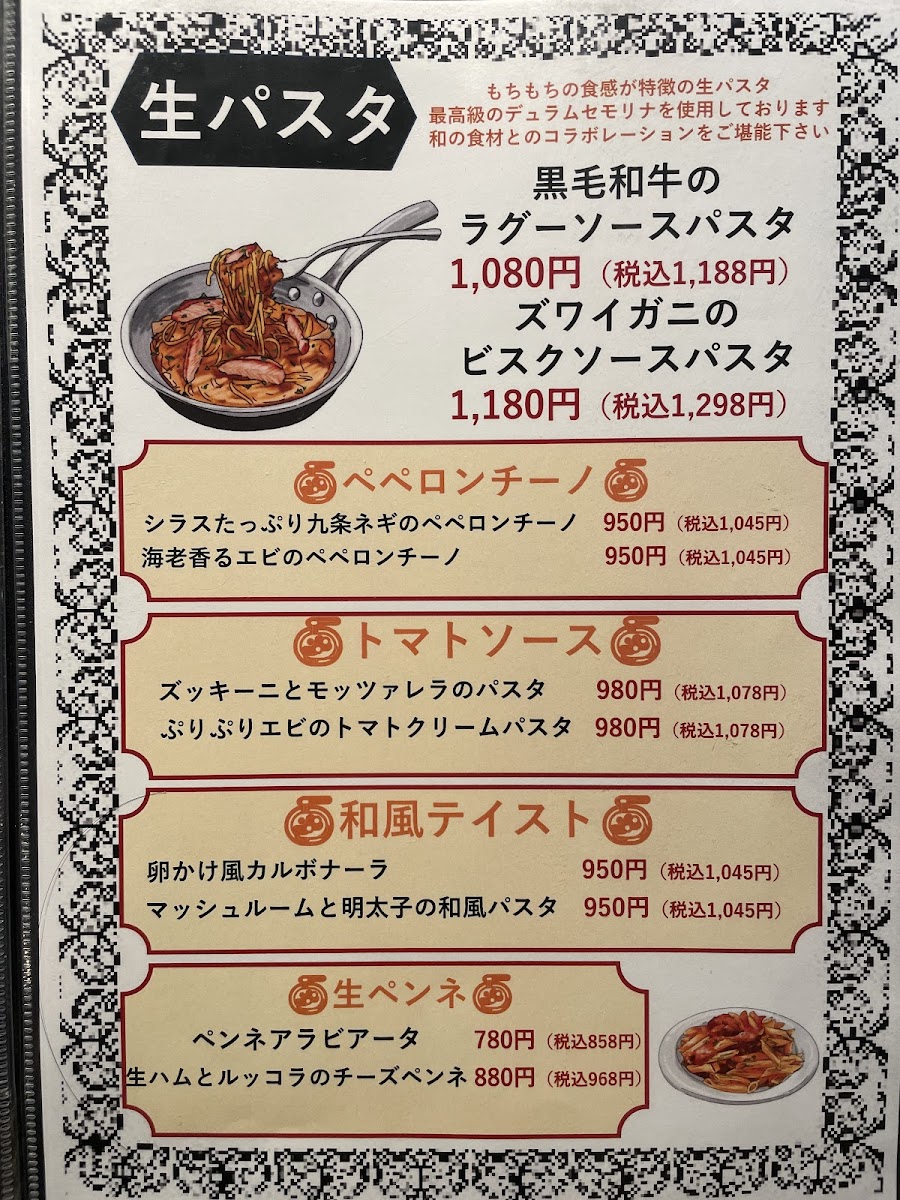 生パスタ
もちもちの食感が特徴の生パスタ
最高級のデュラムセモリナを使用しております
和の食材とのコラボレーションをご堪能下さい
黒毛和牛の
ラグーソースパスタ
1,080円（税込1,188円）
ズワイガニの
ビスクソースパスタ
1,180円（税込1,298円）
ペペロンチーノ
シラスたっぷり九条ネギのペペロンチーノ 950円（税込1,045円）
海老香るエビのペペロンチーノ 950円（税込1,045円）
トマトソース
ズッキーニとモッツァレラのパスタ 980円（税込1,078円）
ぷりぷりエビのトマトクリームパスタ 980円（税込1,078円）
和風テイスト
卵かけ風カルボナーラ 950円（税込1,045円）
マッシュルームと明太子の和風パスタ 950円（税込1,045円）
生ペンネ
ペンネアラビアータ 780円（税込858円）
生ハムとルッコラのチーズペンネ 880円（税込968円）